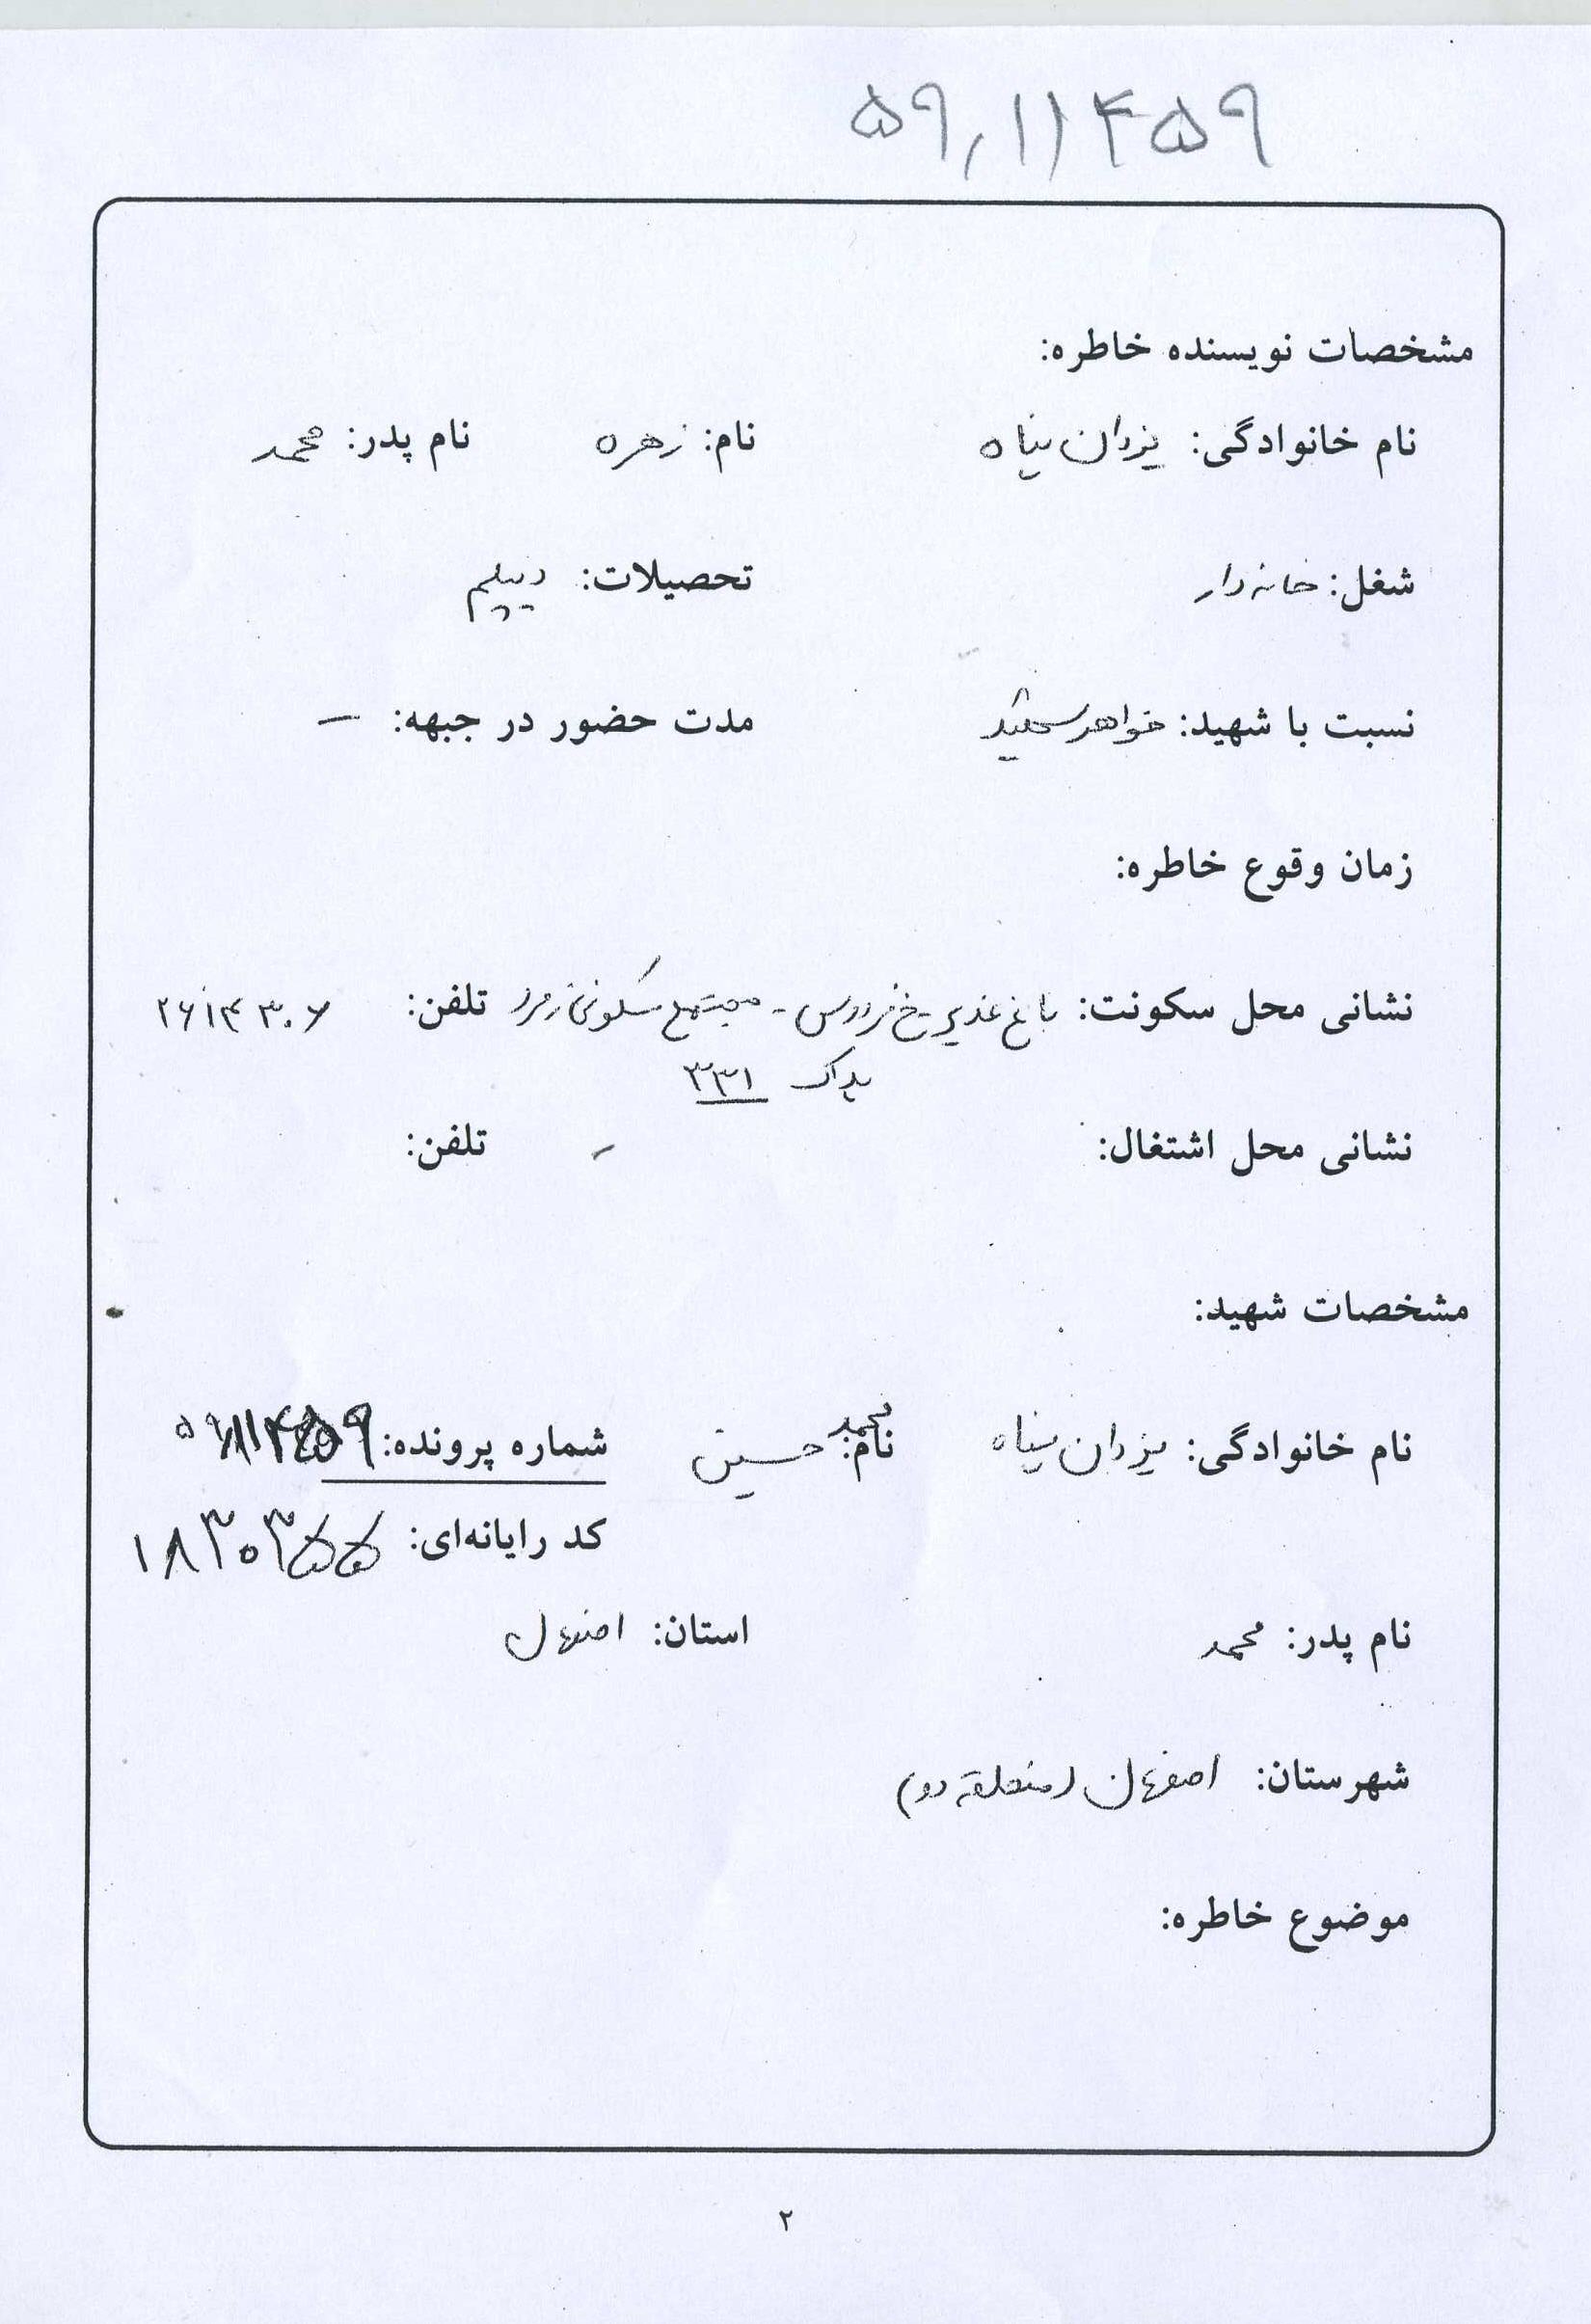 ۵۹,۱۱۴۵۹
مشخصات نویسنده خاطره:
نام خانوادگی: یزدان پناه نام: زهره نام پدر: محمد
شغل: خانه دار تحصیلات: دیپلم
نسبت با شهید: خواهر شهید مدت حضور در جبهه: –
زمان وقوع خاطره:
نشانی محل سکونت: باغ غدیر - خ فردوس - مجتمع مسکونی زمرد تلفن: ۲۶۱۴۳۰۶
پلاک ۳۳۱
نشانی محل اشتغال: – تلفن:
مشخصات شهید:
نام خانوادگی: یزدان پناه نام: محمد حسین شماره پرونده: ۵۹۱۱۴۵۹
کد رایانه‌ای: ۱۸۳۰۳۵۵
نام پدر: محمد استان: اصفهان
شهرستان: اصفهان (منطقه دو)
موضوع خاطره:
۲